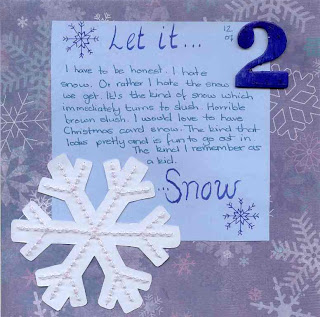 Let it...
12
07
2
I have to be honest. I hate
snow. Or rather I hate the snow
we get. It's the kind of snow which
immediately turns to slush. Horrible
brown slush. I would love to have
Christmas card snow. The kind that
looks pretty and is fun to go out in
The kind I remember as
a kid.
...Snow